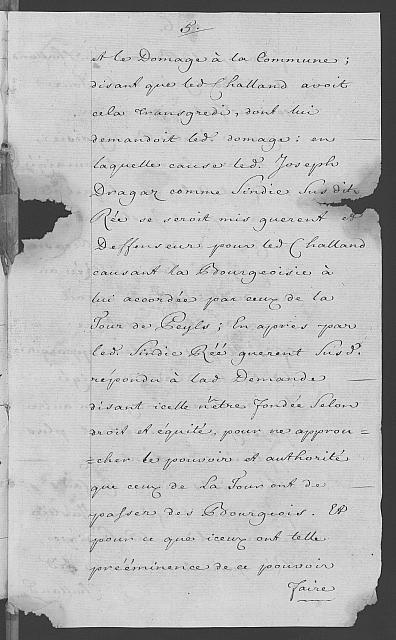 5.
et le Domage à la Commune ;
disant que led Challand avoit
cela transgredi, dont lui
demandoit led. domage : en
laquelle cause led. Joseph
Dragaz comme Sindic Susdit
Rée se seroit mis guerent et
Deffenseur pour led Challand
causant la Bourgeoisie à
lui accordée par ceux de la
Tour de Peyls ; En apres par
led. Sindic Réé guerent Susd.
répondu à lad Demande
disant icelle n'être fondée Selon
droit et équité, pour ne approu=
=cher le pouvoir et authorité
que ceux de La Tour ont de
passer des Bourgeois. Et
pour ce que iceux ont telle
prééminence de ce pouvoir
faire